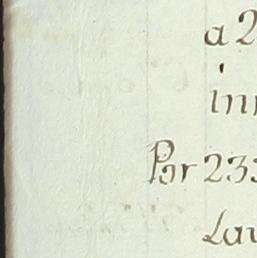 a 2
in
Por 233
Lav